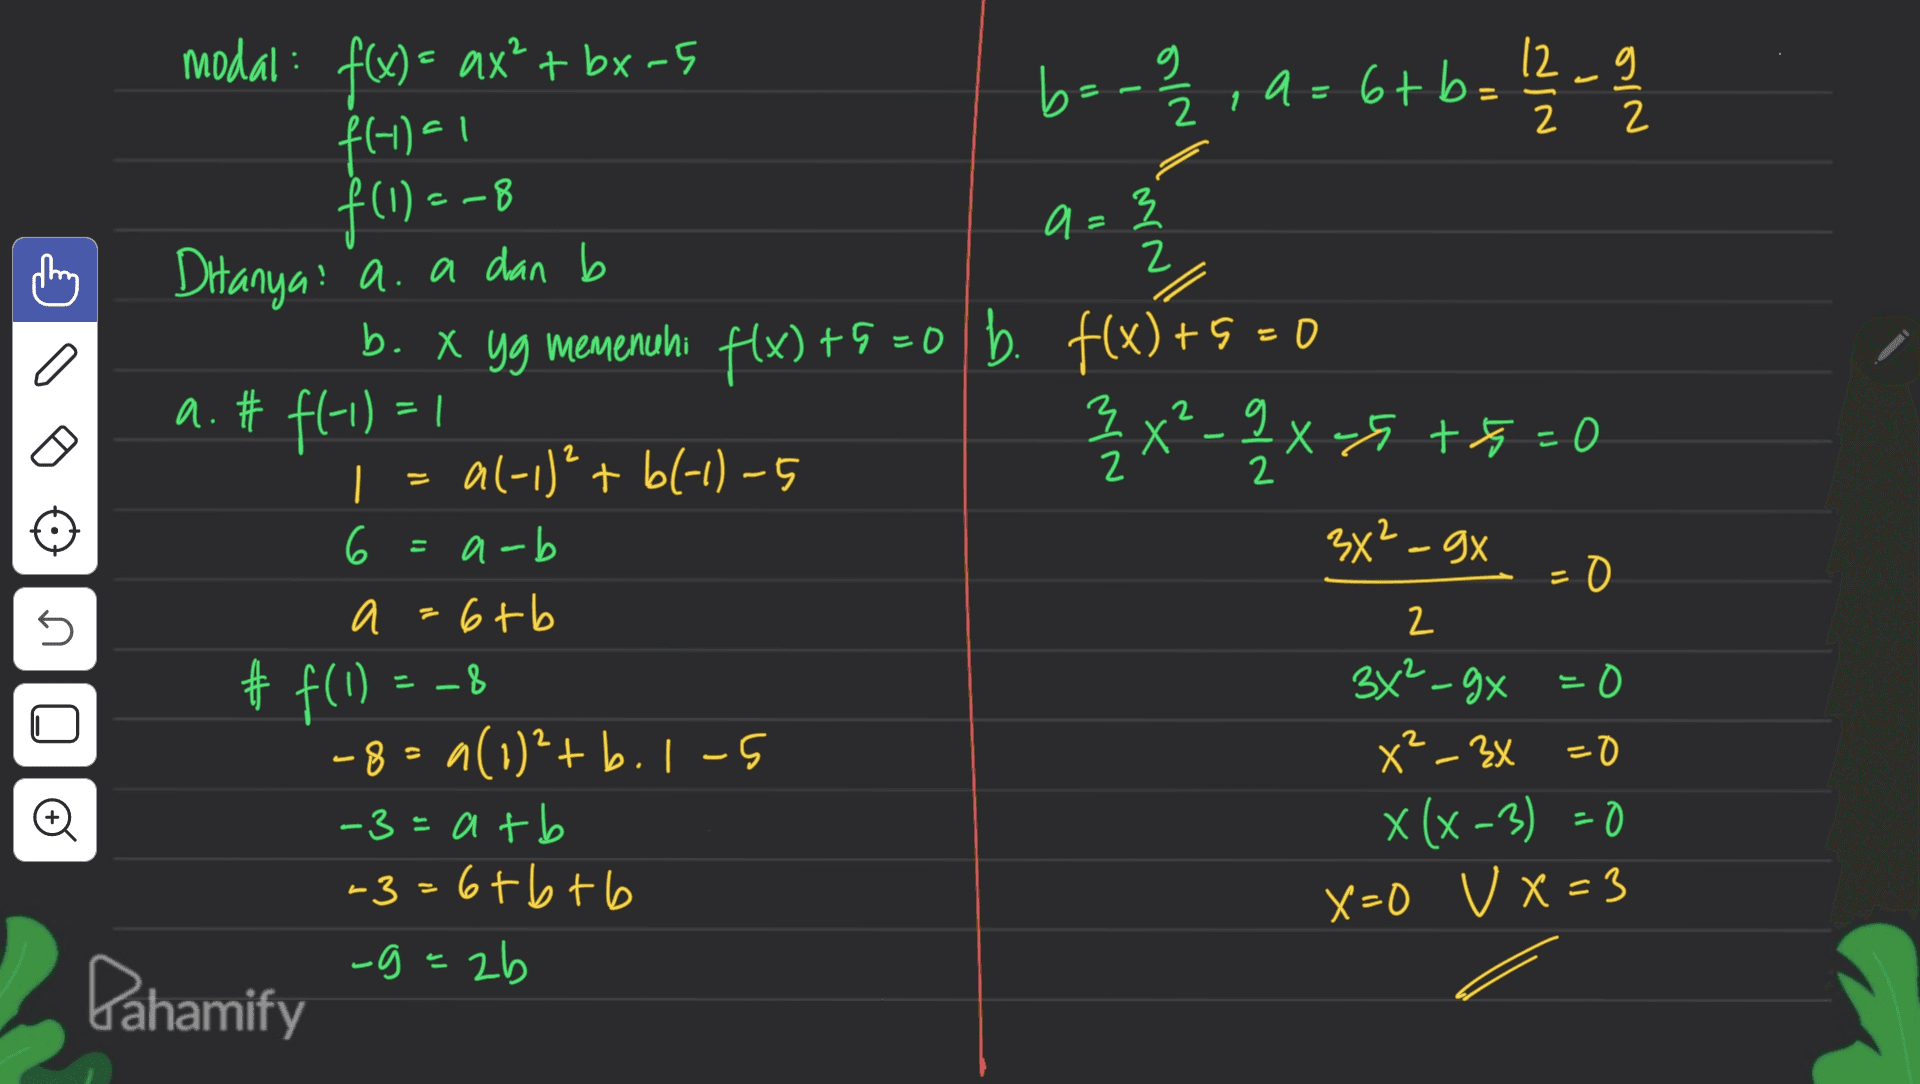 modal : f(x) = ax² + bx - 5
f(-1) = 1
f(1) = -8
Ditanya : a. a dan b
b. x yg memenuhi f(x) + 5 = 0
a. # f(-1) = 1
1 = a(-1)² + b(-1) - 5
6 = a - b
a = 6 + b
# f(1) = -8
-8 = a(1)² + b . 1 - 5
-3 = a + b
-3 = 6 + b + b
-9 = 2b
b = -9/2 , a = 6 + b = 12/2 - 9/2
a = 3/2
b. f(x) + 5 = 0
3/2 x² - 9/2 x - 5 + 5 = 0
3x² - 9x / 2 = 0
3x² - 9x = 0
x² - 3x = 0
x(x - 3) = 0
x = 0 V x = 3
Pahamify